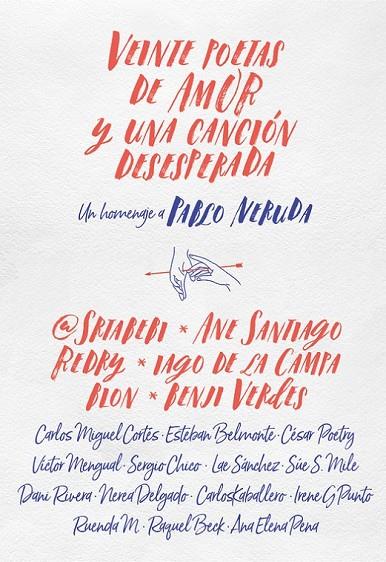 Veinte poetas
de amor
y una canción
desesperada
Un homenaje a Pablo Neruda
@Srtabebi * Ane Santiago
Redry * Iago de la Campa
Blon * Benji Verdes
Carlos Miguel Cortés · Esteban Belmonte · César Poetry
Víctor Mengual · Sergio Chico · Lae Sánchez · Súe S. Mile
Dani Rivera · Nerea Delgado · CarlosKaballero · Irene G Punto
Ruenda M. · Raquel Beck · Ana Elena Pena